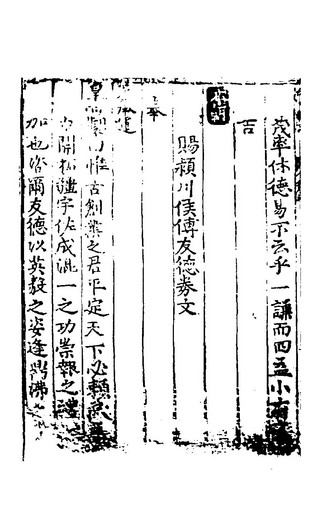 茂率休德易不云乎一謙而四益小有
吉
賜潁川侯傅友德券文
奉
承運
皇帝制曰惟古創業之君平定天下必賴武
力開拓疆宇佐成混一之功崇報之禮
加也咨爾友德以英毅之姿逢興